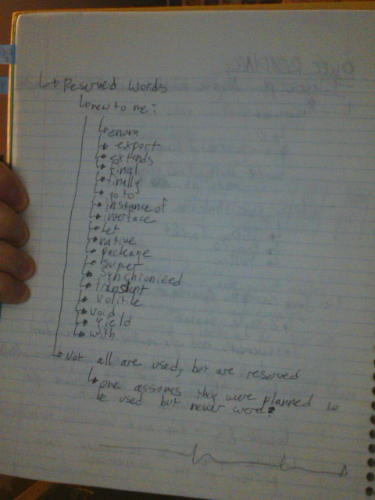 Reserved Words
new to me:
enum
export
extends
final
finally
goto
instanceof
interface
let
native
package
super
synchronized
transient
volitile
void
yield
with
Not all are used, but are reserved
one assumes they were planned to
be used but never were?